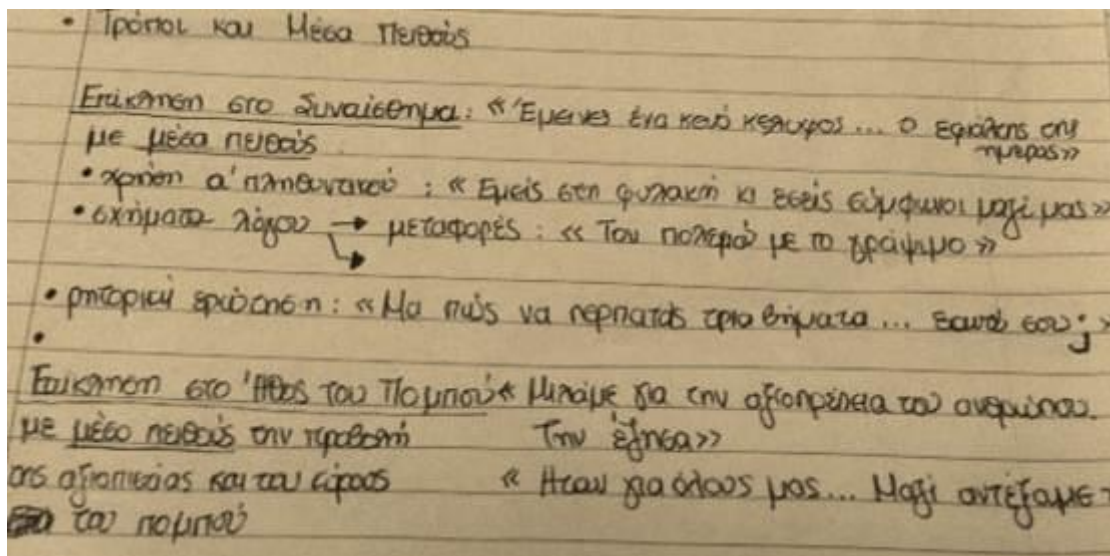 • Τρόποι και Μέσα Πειθούς
Επίκληση στο Συναίσθημα: «Έμεινες ένα κενό κέλυφος... ο εφιάλτης της
ημέρας»
με μέσα πειθούς
• χρήση α' πληθυντικού : « Εμείς στη φυλακή κι εσείς σύμφωνοι μαζί μας»
• σχήματα λόγου → μεταφορές : « Τον πολεμώ με το γράψιμο »
• ρητορική ερώτηση : «Μα πώς να περπατάς τρία βήματα... σου; »
•
Επίκληση στο Ήθος του Πομπού « Μιλάμε για την αξιοπρέπεια του ανθρώπου.
με μέσο πειθούς την προβολή Την έζησα»
της αξιοπιστίας και του κύρους « Ήταν για όλους μας... Μαζί αντέξαμε
του πομπού